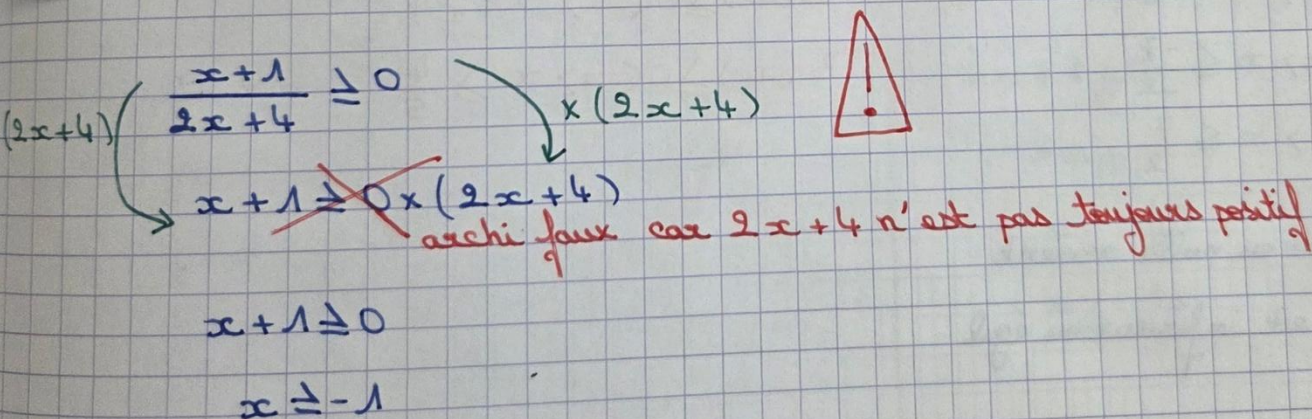 x+1
2x+4 ≥ 0
(2x+4)
×(2x+4)
!
x+1 ≥ 0×(2x+4)
archi faux car 2x+4 n'est pas toujours positif
x+1 ≥ 0
x ≥ -1